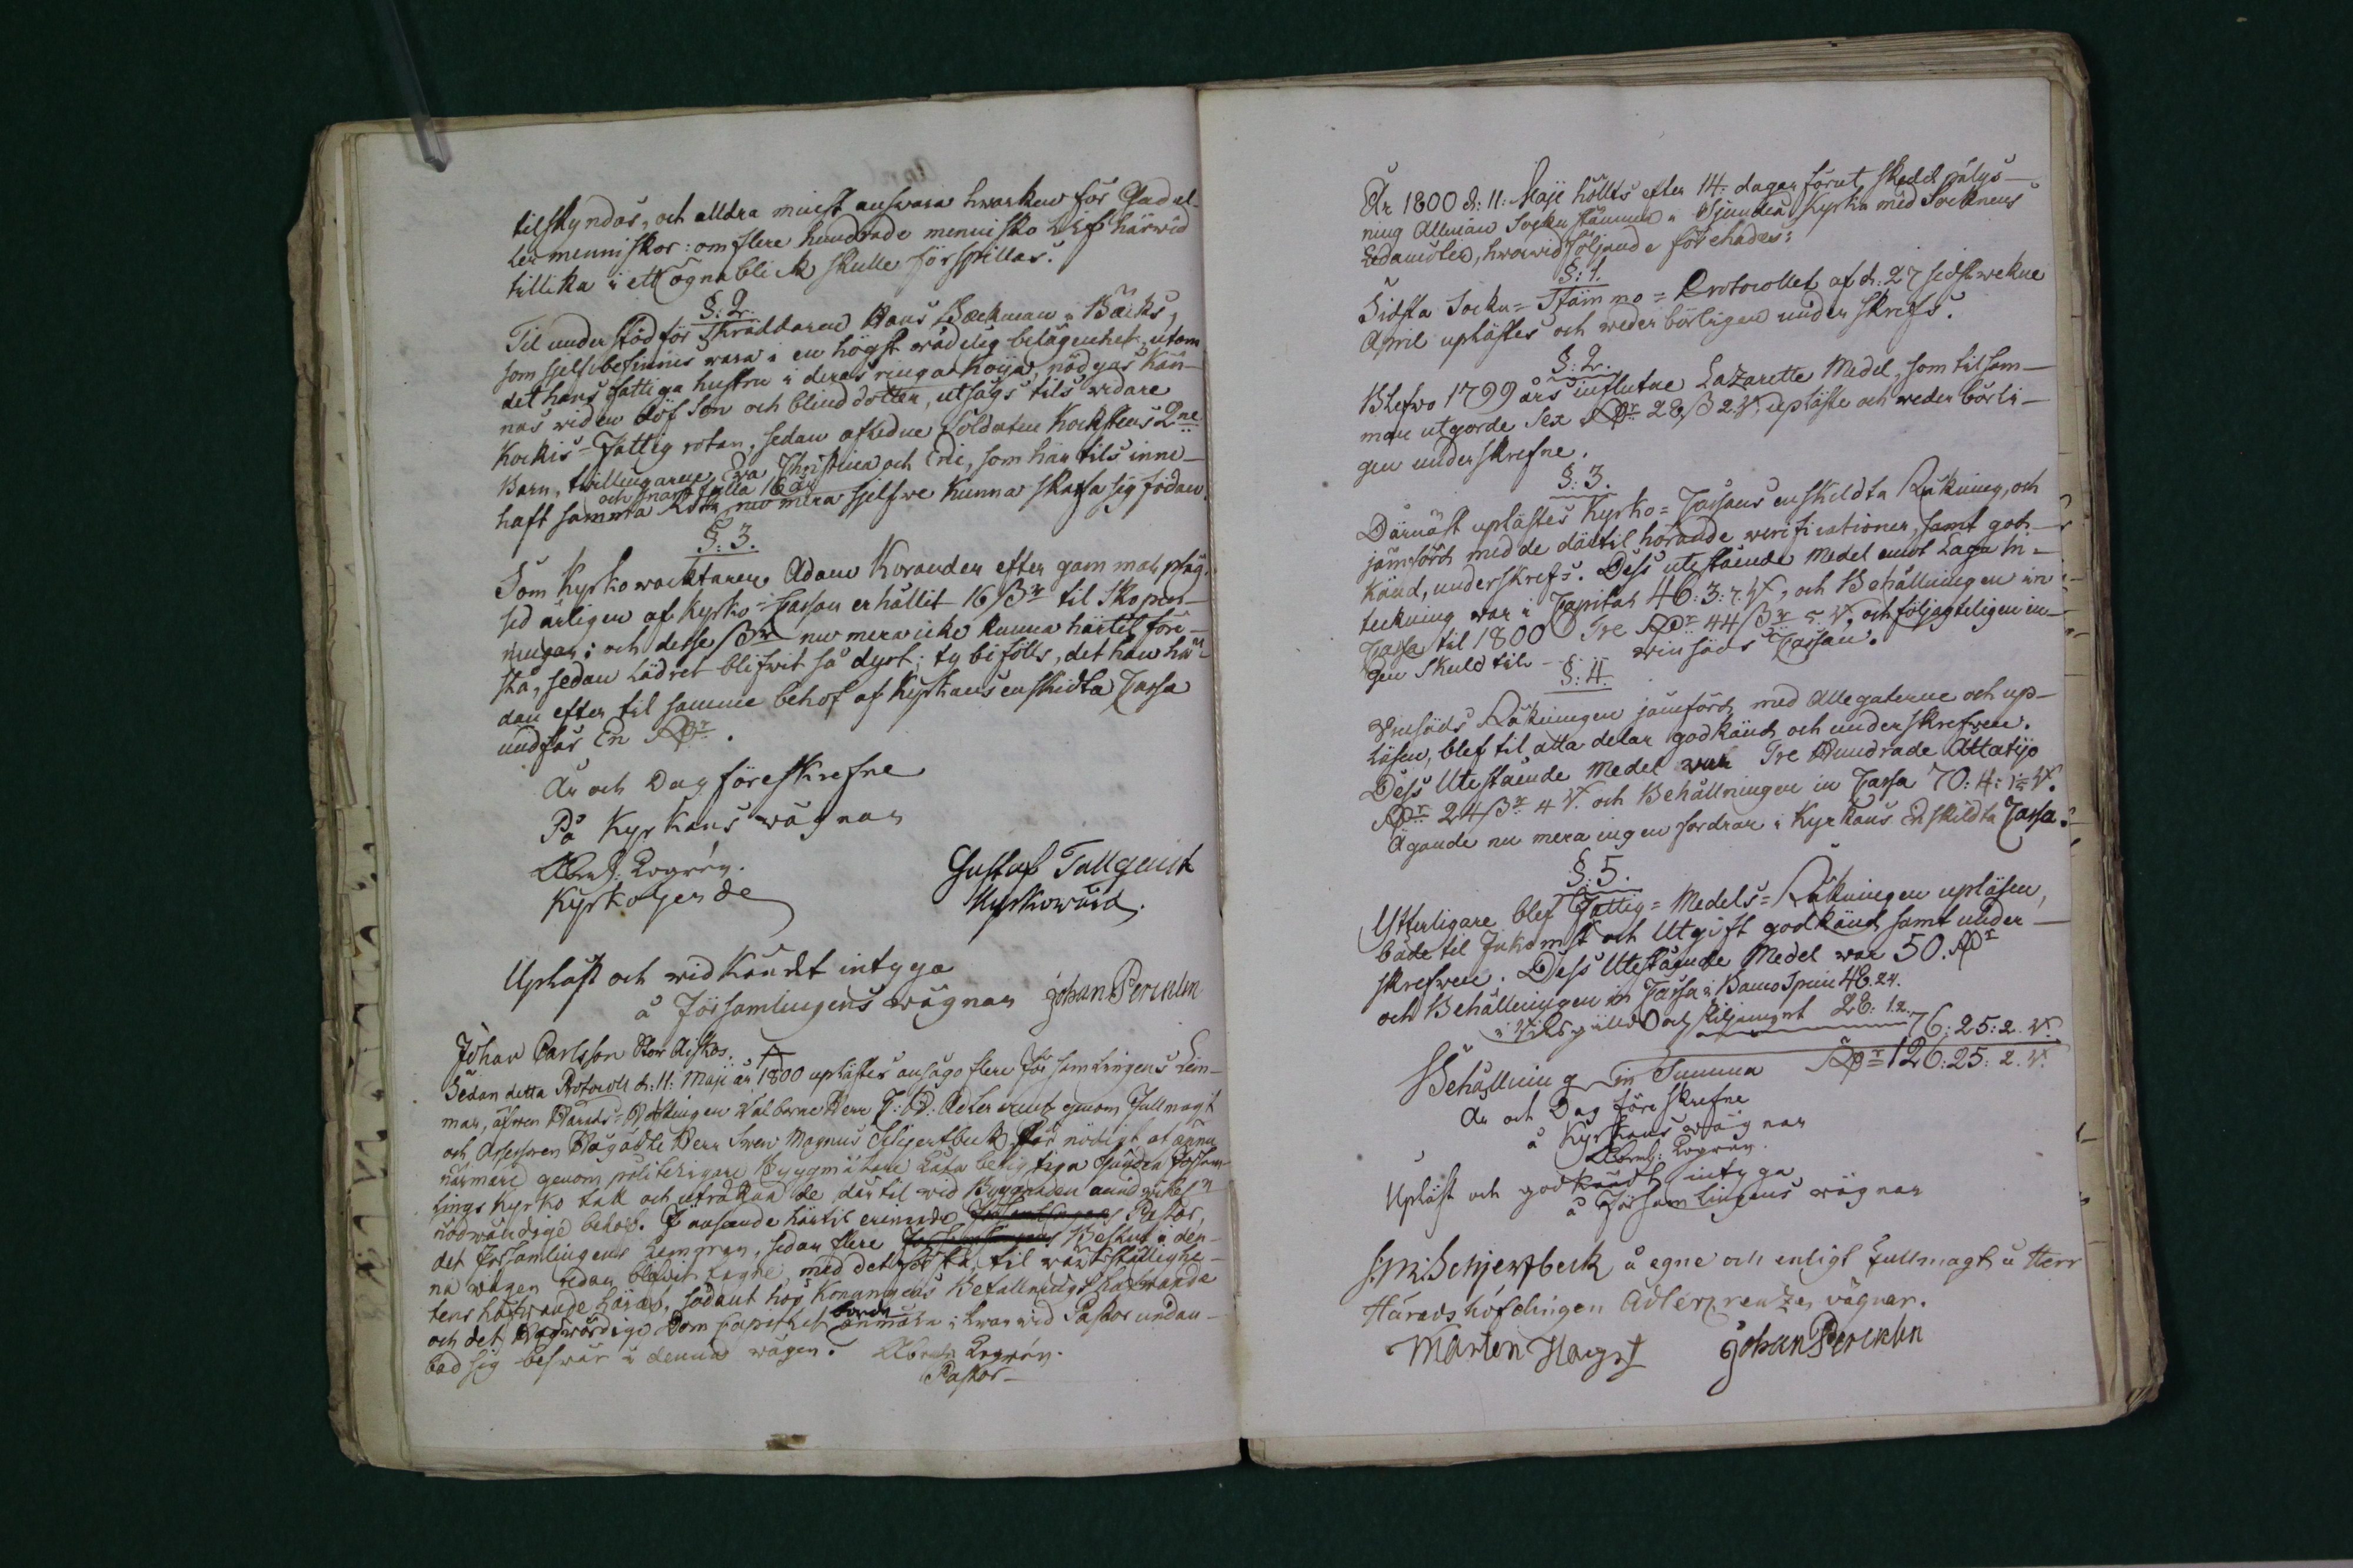 tilskyndas, och alldra minst answara hwarken för Gud el-
ler menniskor: om flere hundrade mennisko Lif härwid
tillika i ett ögnablick skulle förspillas.
§: 2.
Til understöd för Skräddaren Hans Bäckman i Bäcks,
som sjelf befinnes wara i en högst wådelig belägenhet, utom
det hans fattiga hustru i deras ringa Koija, nödgas Kän-
nas wid en döf Son och blind dotter, utsågs tils widare
Kockis-Fattig rotan, sedan afledne Soldaten Kocksens 2ne
Barn, twillingarne, Christina och Eric, som här tils inne-
och snart fylla 16 år
haft samma Rota, nu mera sjelfwe Kunna skaffa sig födan.
§: 3.
Som Kyrkowacktaren Adam Korander efter gammal pläg-
sed årligen af Kyrko-Cassan erhållit 16 ßr til Skopen-
ningar; och desse ßr nu mera icke kunna härtil före-
slå, sedan Lädret blifwit så dyrt; ty bifölls, det han hä-
dan efter til samme behof af Kyrkans enskildta Cassa
undfår En Rdr.
År och Dag föreskrefne
På Kyrkans wägnar
Abrah: Pogrén.
Kyrkoherde
Gustaf Tallqvist
Kyrkowärd.
Upläst och widkändt intyga
å Församlingens wägnar Johan Perklen
Johan Carlsson Stor Aiskos.
Sedan detta Protocoll d: 11: Maji år 1800 uplästes ansågo flere församlingens Lem-
mar, äfwen Härads-Höfdingen Wälborne Herr Adlercreutz genom Fullmagt
och Assessoren Högädle Herr Swen Magnus Schjerfbeck för nödigt at ännu
närmare genom Byggmästare Låta besigtiga Församl-
lings Kyrko tak och uträkna de därtil wid Byggnaden
nödwändige behof. I anseende härtil erinrade Pastor,
det Församlingens Lemmar, sedan flere Beslut i den-
na wägen redan blifwit tagne, med det sista, til wärkställighe-
tens hafwande Lärer, sådant hos Konungens Befallningshafwande
och det Högwördige Dom Capitlet borde anmäla; hwarwid Pastor undan-
bad sig beswär i denna wägen. Abrah Pogrén.
Pastor
År 1800 d: 11: Maji hölts efter 14: dagar förut skedd pålys-
ning Allmän Sockn stämma i Sjundeå Kyrka med Socknens
Ledamöter, hwarwid följande förehades:
§: 1.
Sidsta Sockn-Stämmo-Protocollet af d: 27 sidstwekne
April uplästes och wederbörligen underskrefs.
§: 2.
Blefwo 1799 års influtne Lazaretts Medel, som tilsam-
man utgorde Sex Rdr 28 ß 2 rst upläste och wederbörli-
gen underskrefne.
§: 3.
Därnäst uplästes Kyrko-Cassans enskildta Räkning, och
jämförd med de därtil hörande verificationer, samt god-
känd, underskrefs. Dess utestående Medel emot Laga In-
teckning war i Capital 46: 3: 7. rst, och Behållningen in
Cassa til 1800 Tre Rdr 44 ßr 5 rst. och följagteligen in-
gen skuld til - - - winsäds Cassan.
§: 4.
Winsäds Räkningen jämförd med Allegaterne och up-
läsen, blef til alla delar godkänd och underskrefwen.
Dess Utestående Medel war Tre Hundrade Åttatijo
Rdr 24 ßr 4 rst. och Behållningen in Cassa 70: 4: 1 rst.
Ägande nu mera ingen fordran i Kyrkans Enskildta Cassa.
§: 5.
Ytterligare blef Fattig-Medels-Räkningen upläsen,
både til Inkomst och Utgift godkänd samt under-
skrefwen. Dess Utestående Medel war 50. Rdr
och Behållningen in Cassa i Banco Spmt 48.24.
i Riksgälds och skiljemynt 28: 1.2. 76: 25: 2. rst.
Behållning in Summa Rdr 126: 25: 2. rst.
År och Dag föreskrefne
å Kyrkans wägnar
Abrah: Pogrén.
Upläst och godkändt intyga
å Församlingens wägnar
S: M: Schjerfbeck å egne och enligt Fullmagt å Herr
Häradshöfdingen Adlercreutzes vägnar.
Mårten Hagert Johan Perklen